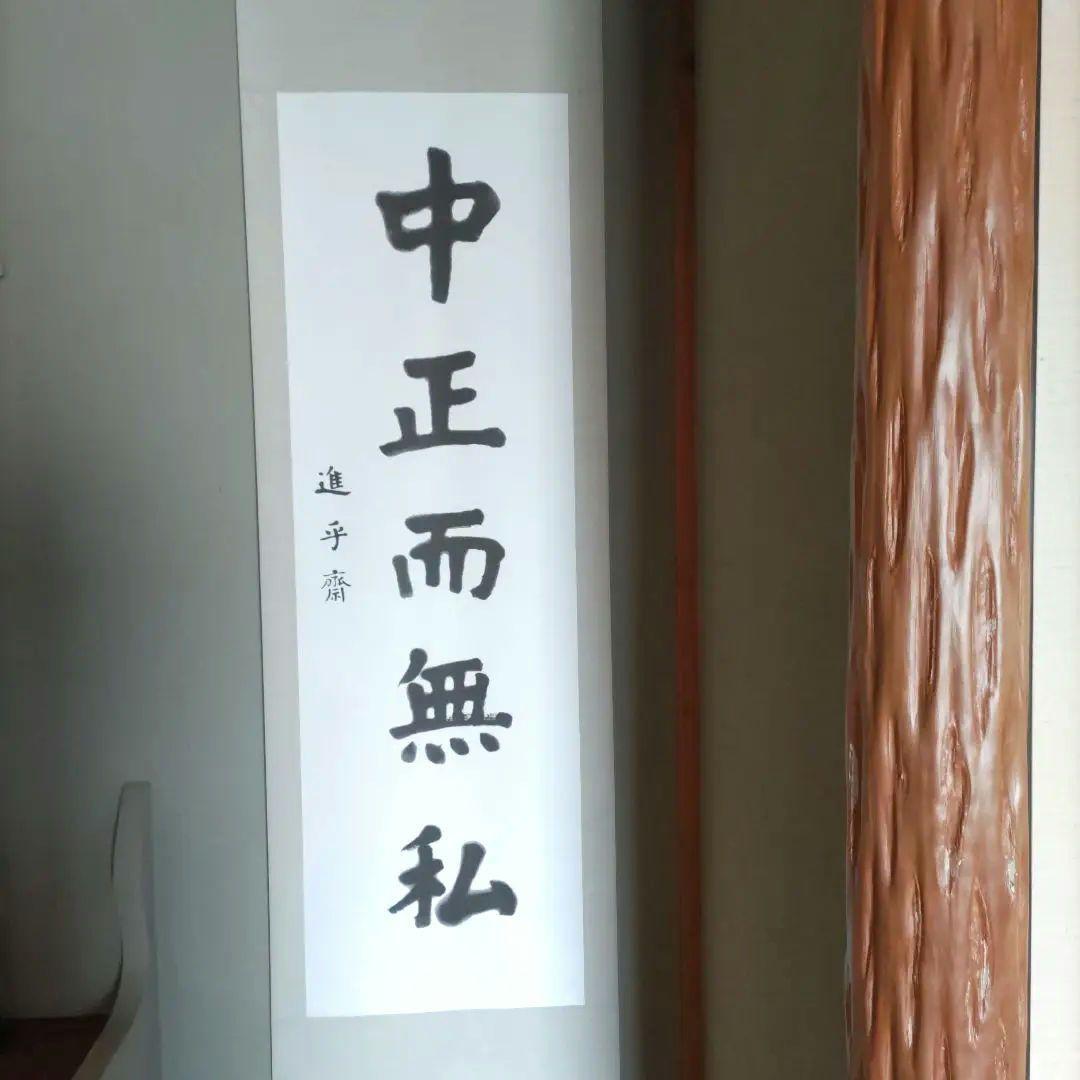 中正而無私
進乎齋